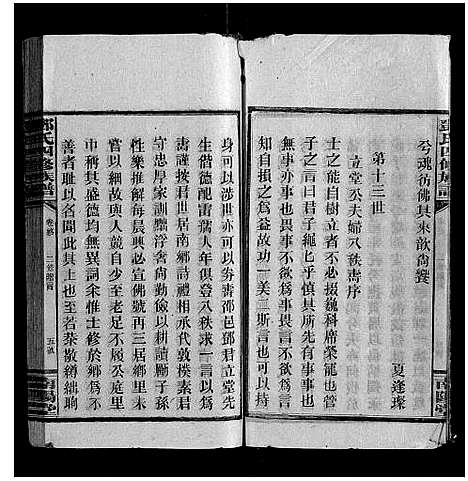 鄧氏四修族譜
兮魂彷彿其來歆尚饗
第十三世
立堂公夫婦八秩壽序
夏逢璨
士之能自樹立者不必掇巍科席榮寵也世君
子之言曰君子繩々乎慎其所先有事事也
無事也畏事不欲爲事畏言不欲爲言
知自損之爲益故功一美二斯言也可以持
身可以涉世亦可以夀壽邵邑鄧君立堂先
生偕德配雷孺人年俱登八秩求一言以爲
壽謹按君世居南鄉詩禮相承代敦樸素君
守忠厚家訓驕浮奢尚勤儉以耕讀勵子孫
性樂推解每晨興必宣佛號再三居鄉里未
嘗以細故與人競自少至老足不履公庭里
巾稱其盛德均無異詞余惟士修於鄉爲不
善者耻以名聞此其上也至若裒散縛紲
鄧氏四修族譜
卷 二 五
南陽堂
南陽堂